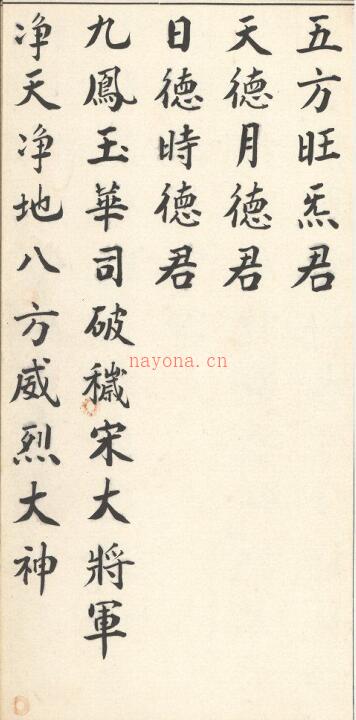 五方旺炁君
天德月德君
日德時德君
九鳳玉華司破穢宋大將軍
净天净地八方威烈大神
nayona.cn